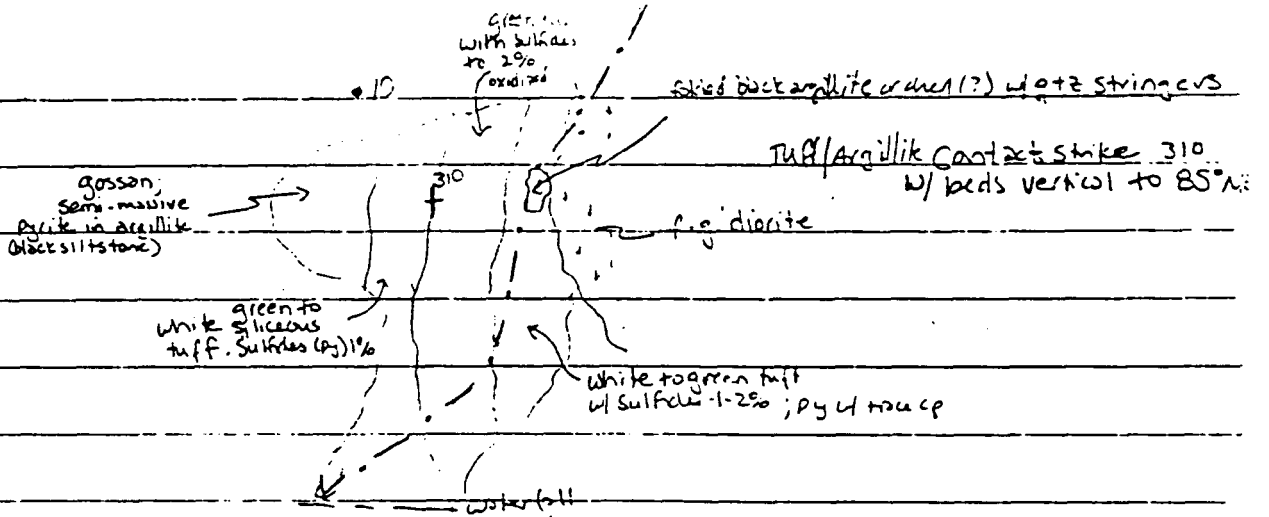 with sulfides
to 2%,
oxidized
• 10
black argillite or chert (?) w/ qtz stringers
Tuff/Argillite Contact: Strike 310
w/ beds vertical to 85° N
310
gossan;
semi-massive
pyrite in argillite
(black siltstone)
f.g. diorite
green to
white siliceous
tuff. Sulfides (py) 1%
white to green tuff
w/ Sulfides -1-2%; py w/ trace cp
waterfall